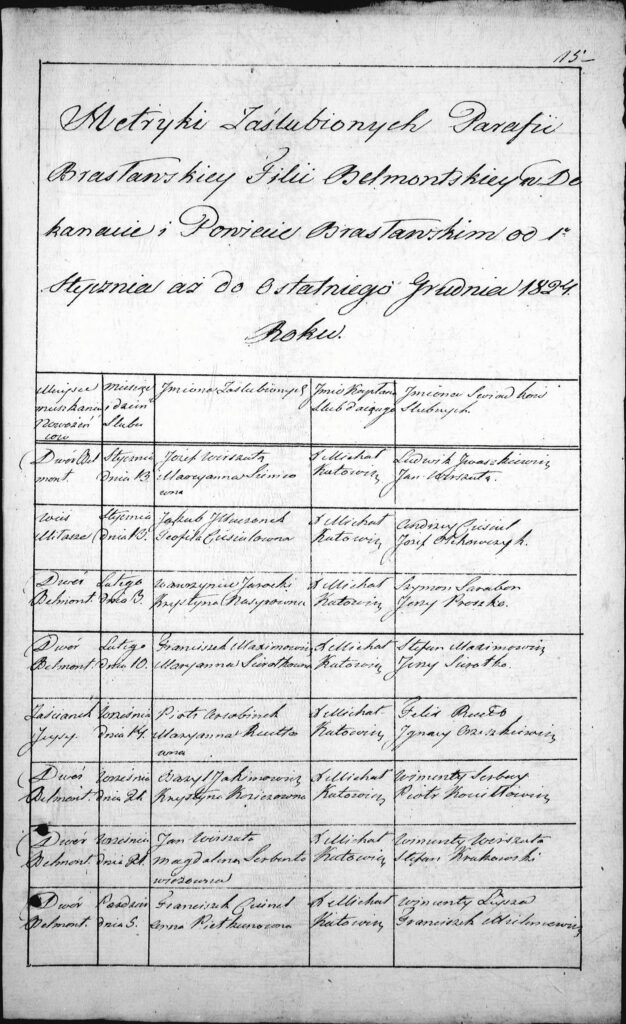 15
Metryki Zaślubionych Parafii
Brasławskiey Filii Belmontskiey w De
kanacie i Powiecie Brasławskim od 1o
Stycznia aż do Ostatniego Grudnia 1824.
Roku.
Mieysce mieszkania nowożeń cow
miesiąc i dzień Slubu
Jmiona Zaślubionych
Jmie Kapłana Slub daiącego
Jmiona Swiadkow Slubnych.
Dwór Bel mont.
Stycznia dnia 13.
Jozef Wirszuta Maryanna owna
X Michał Katowicz
Ludwik Jwaszkiewicz Jan Wirszuta.
Wieś
Stycznia dnia 13.
Jakub Teofila
X Michał Katowicz
Andrzey Jozef
Dwór Belmont.
Lutego dnia 3.
Wawrzyniec Jarocki Krystyna
X Michał Katowicz
Szymon Saraban Jerzy Proszko.
Dwór Belmont.
Lutego dnia 10.
Franciszek Maximowicz Maryanna
X Michał Katowicz
Stefan Maximowicz Jerzy
Zaścianek
Września dnia 14.
Piotr Maryanna owna
X Michał Katowicz
Felix Jgnacy
Dwór Belmont.
Września dnia 21.
Bazyl Jakimowicz Krystyna
X Michał Katowicz
Wincenty Piotr
Dwór Belmont.
Września dnia 21.
Jan Wirszuta Magdalena Serbento wiczowna
X Michał Katowicz
Wincenty Wirszuta Stefan Krakowski
Dwór Belmont.
dnia 5.
Franciszek Anna Pietkunowna
X Michał Katowicz
Wincenty Franciszek